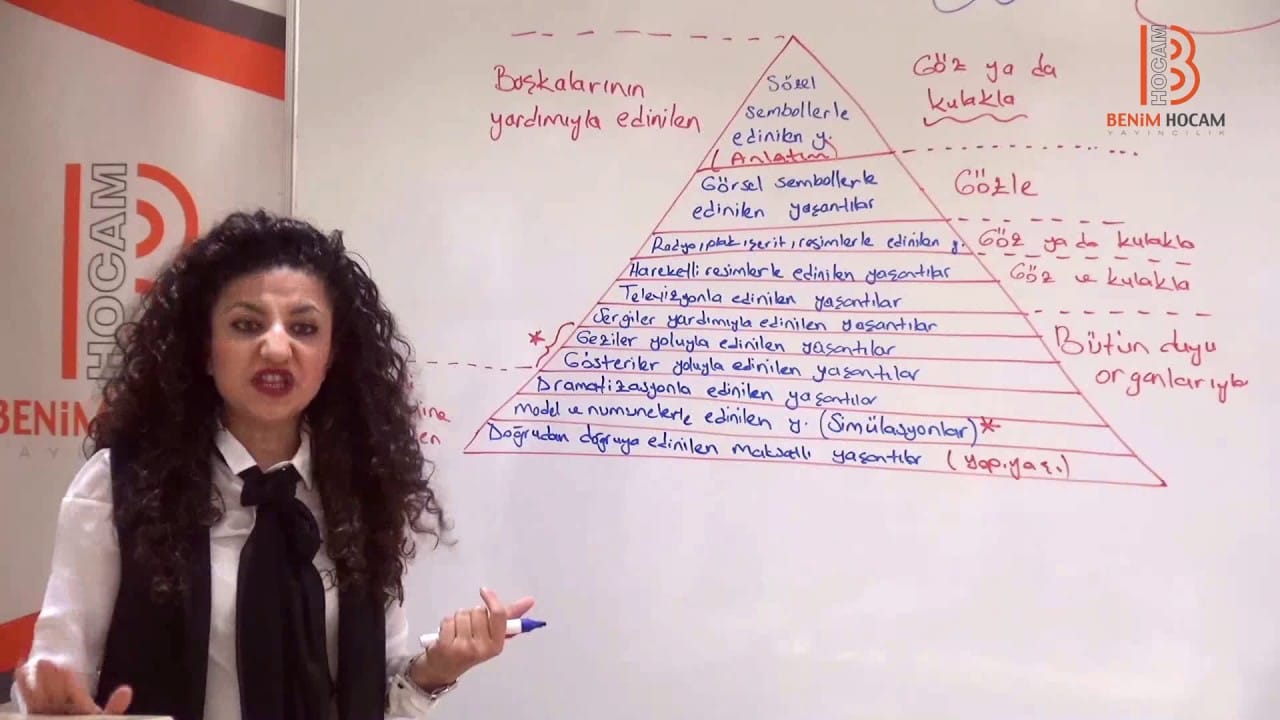 Başkalarının
yardımıyla edinilen
Sözel
sembollerle
edinilen y.
(Anlatım)
Görsel sembollerle
edinilen yaşantılar
Radyo, plak, şerit, resimlerle edinilen y.
Hareketli resimlerle edinilen yaşantılar
Televizyonla edinilen yaşantılar
Sergiler yardımıyla edinilen yaşantılar
* Geziler yoluyla edinilen yaşantılar
Gösteriler yoluyla edinilen yaşantılar
Dramatizasyonla edinilen yaşantılar
Model ve numunelerle edinilen y. (Simülasyonlar)*
Doğrudan doğruya edinilen maksatlı yaşantılar (yap. yaş.)
Göz ya da
kulakla
Gözle
Göz ya da kulakla
Göz ve kulakla
Bütün duyu
organlarıyla
HOCAM
BENİM HOCAM
YAYINCILIK
HOCAM
BENİM